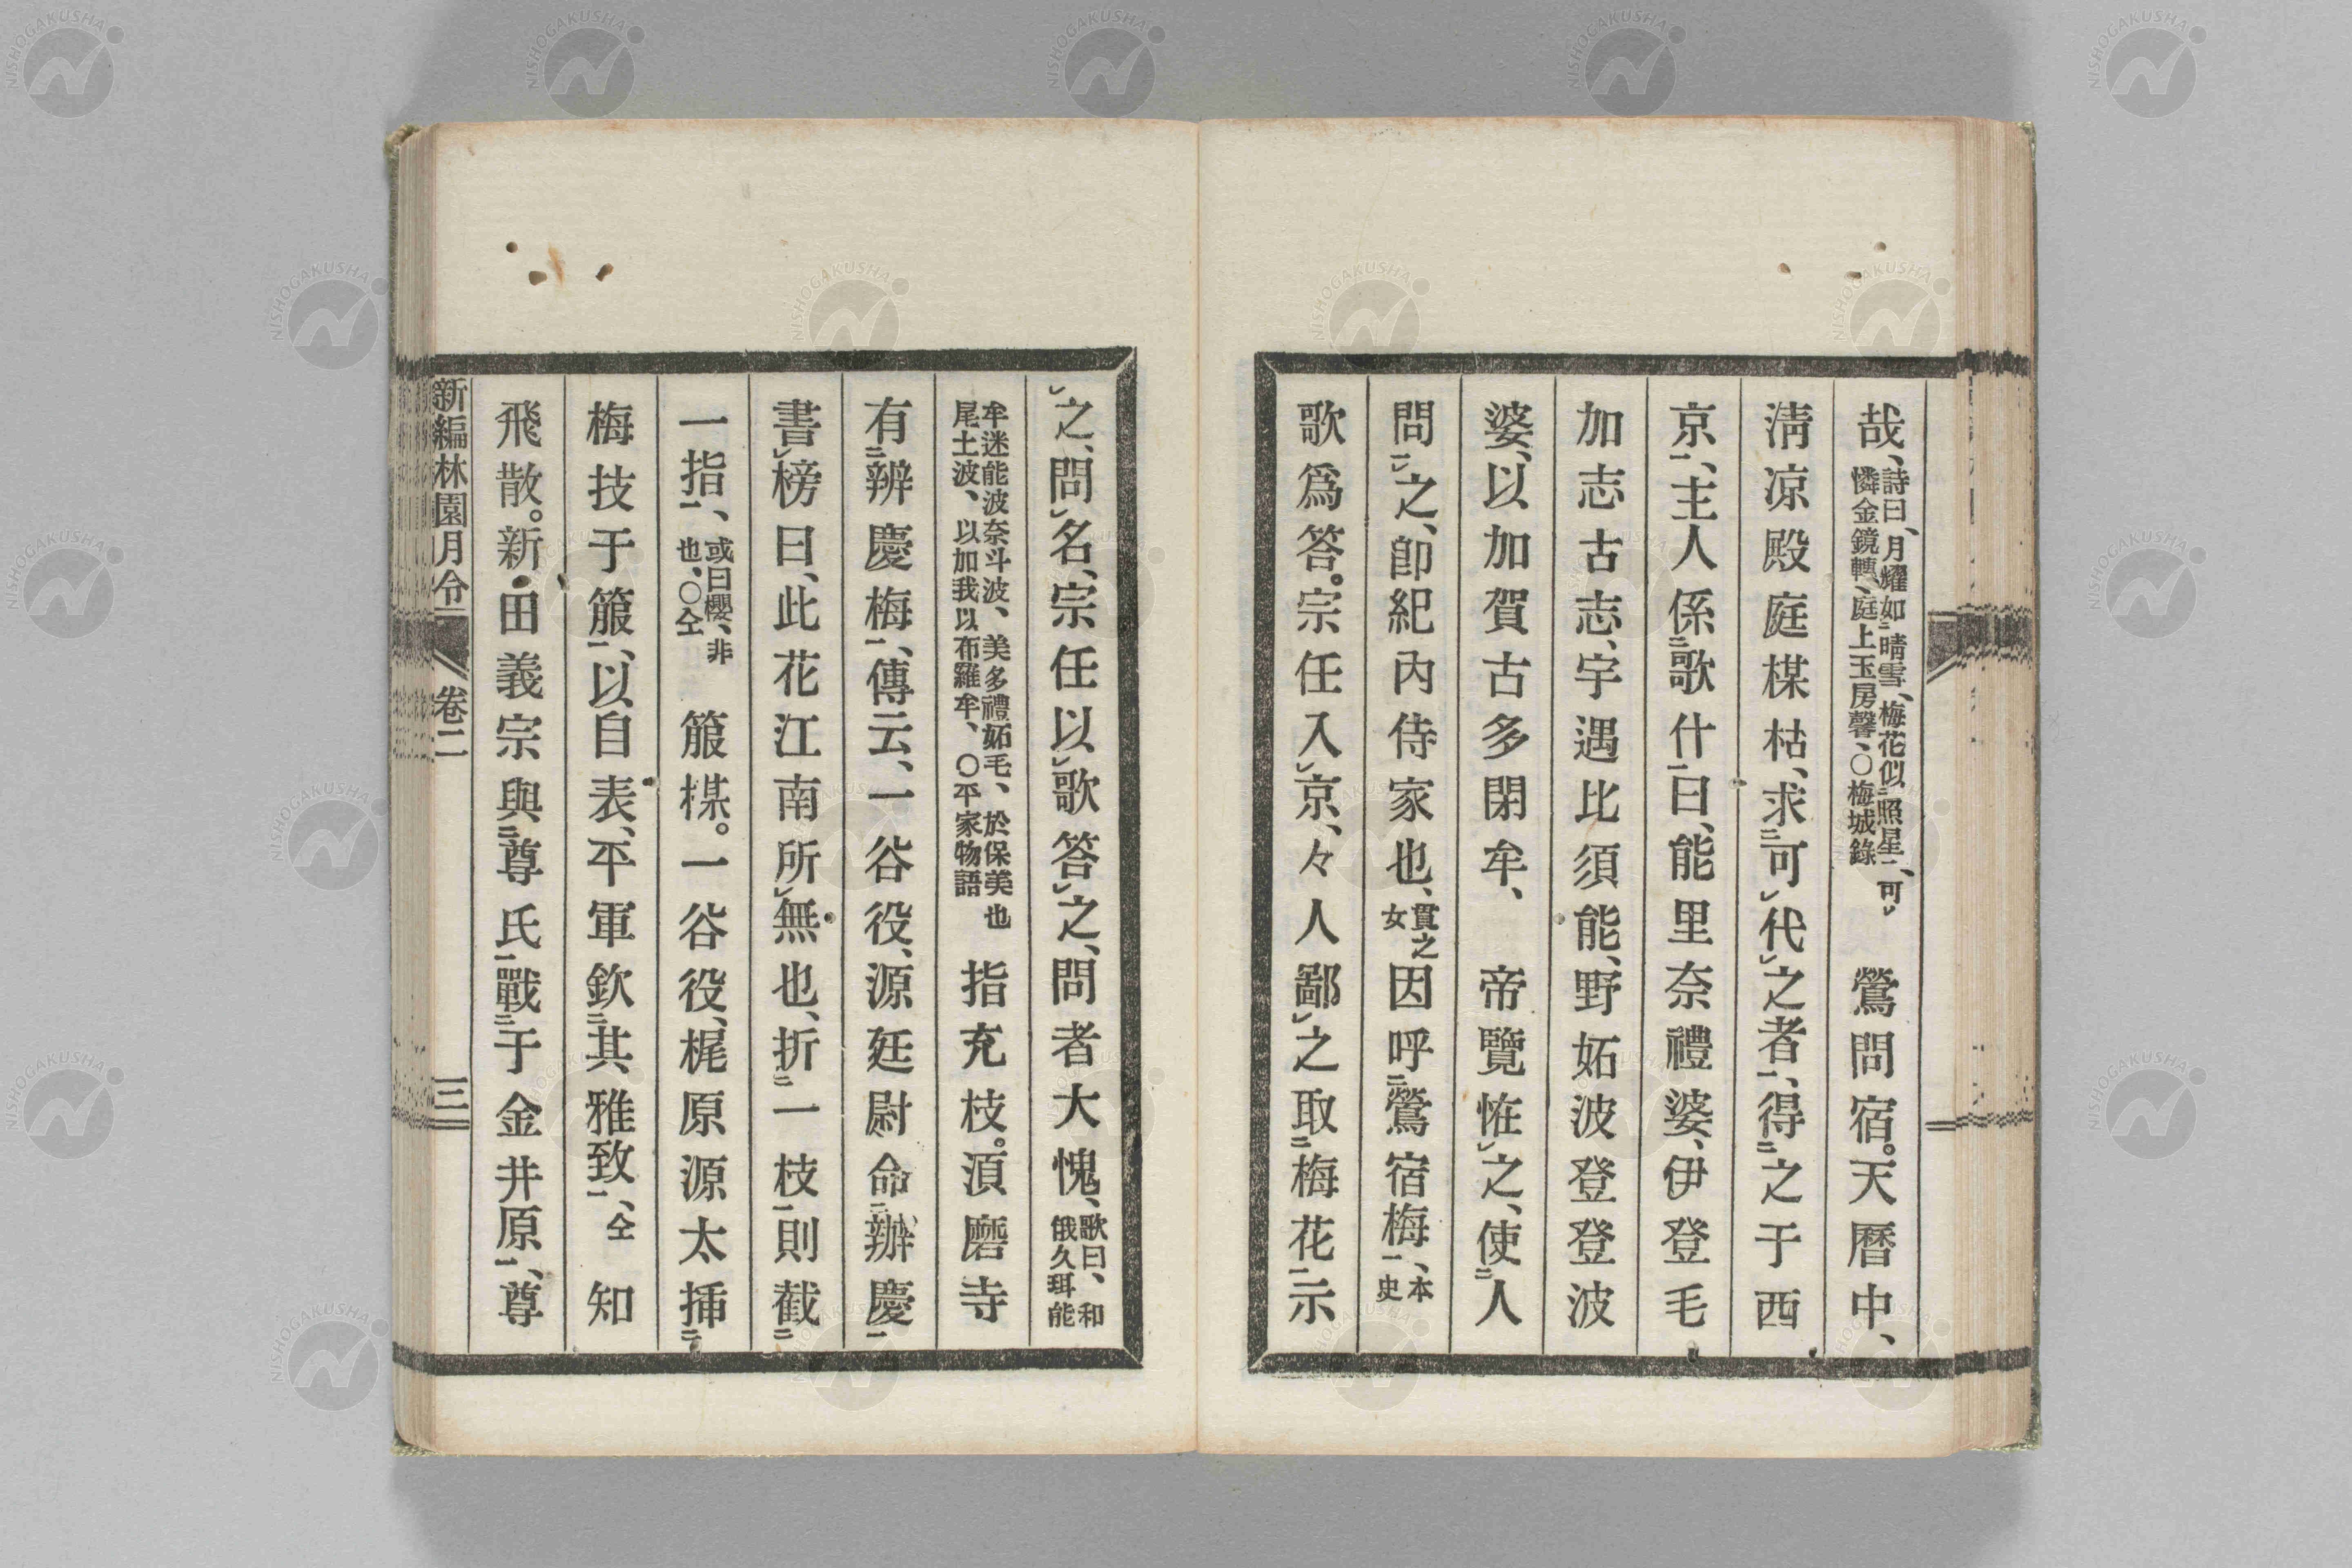 哉、詩曰、月耀如二晴雪、梅花似二照星一、可レ憐金鏡轉、庭上玉房馨、〇梅城錄 鶯問宿。天曆中、
淸凉殿庭楳枯、求二可レ代レ之者一、得二之于西
京一、主人係二歌什一曰、能里奈禮婆、伊登毛
加志古志、宇遇比須能、野妬波登登波
婆、以加賀古多閉牟、 帝覽恠レ之、使二人
問一レ之、卽紀內侍家也、貫之女因呼二鶯宿梅一、本史
歌爲答。宗任入レ京、々人鄙レ之取二梅花一示
レ之、問レ名、宗任以レ歌答レ之、問者大愧、歌曰、和俄久珥能
牟迷能波奈斗波、美多禮妬毛、於保美也尾土波、以加我以布羅牟、〇平家物語 指充枝。湏磨寺
有二辨慶梅一、傳云、一谷役、源廷尉命二辦慶一
書レ榜曰、此花江南所レ無也、折二一枝一則截二
一指一、或曰櫻、非也、〇仝 箙楳。一谷役、梶原源太揷二
梅技于箙一、以自表、平軍欽二其雅致一、仝 知
飛散。新田義宗與二尊氏一戰二于金井原一、尊
新編林園月令 卷二 三